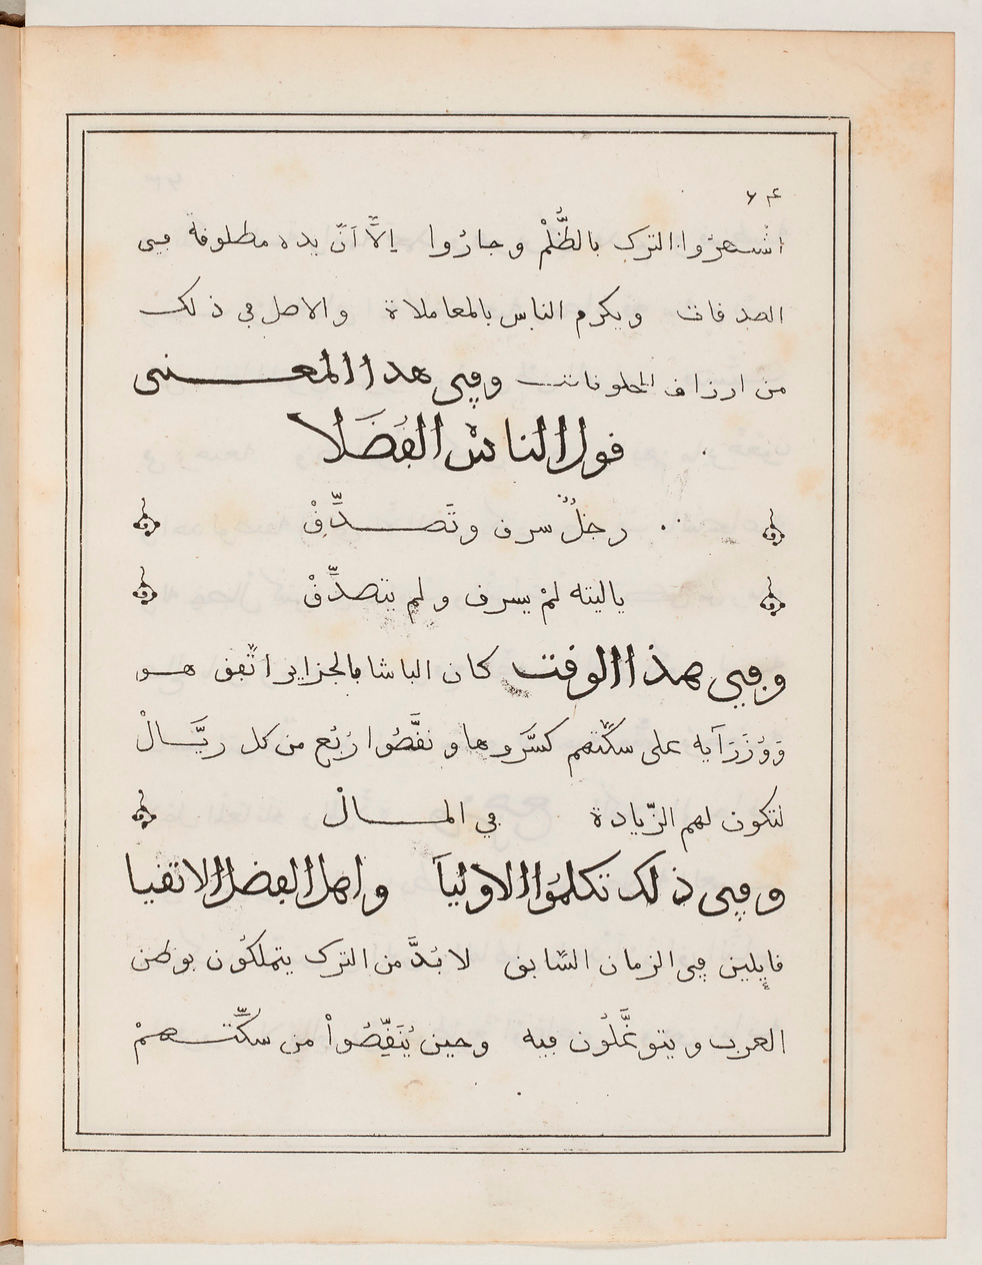 ٦٤
اشْهرُوا الترك بالظُّلْم وجارُوا اِلاَّ اَنّ يده مطلوقة في
الصدقات ويكرم الناس بالمعاملاة والاصل في ذلك
من ارزاق المخلوقات وفي هدا المعنى
قول الناس الفُضَلا
رجلٌ سرق وتَصدِّقْ
ياليته لمْ يسرق ولم يتصدِّقْ
وفي هذا الوقت كان الباشا بالجزاير اتّفق هو
وَوُزَرَآيه على سكّتهم كسَّروها ونقَّصُوا رُبُع من كل ريَّالْ
لتكون لهم الزّيادة في المالْ
وفي ذلك تكلمُوا الاوليآ واهل الفضل الاتقيا
قايِلين في الزمان السّابق لا بُدَّ من الترك يتملكُون بوطن
العرب ويتوغَّلُون فيه وحين يُنَقِّصُواْ من سكِّتهمْ